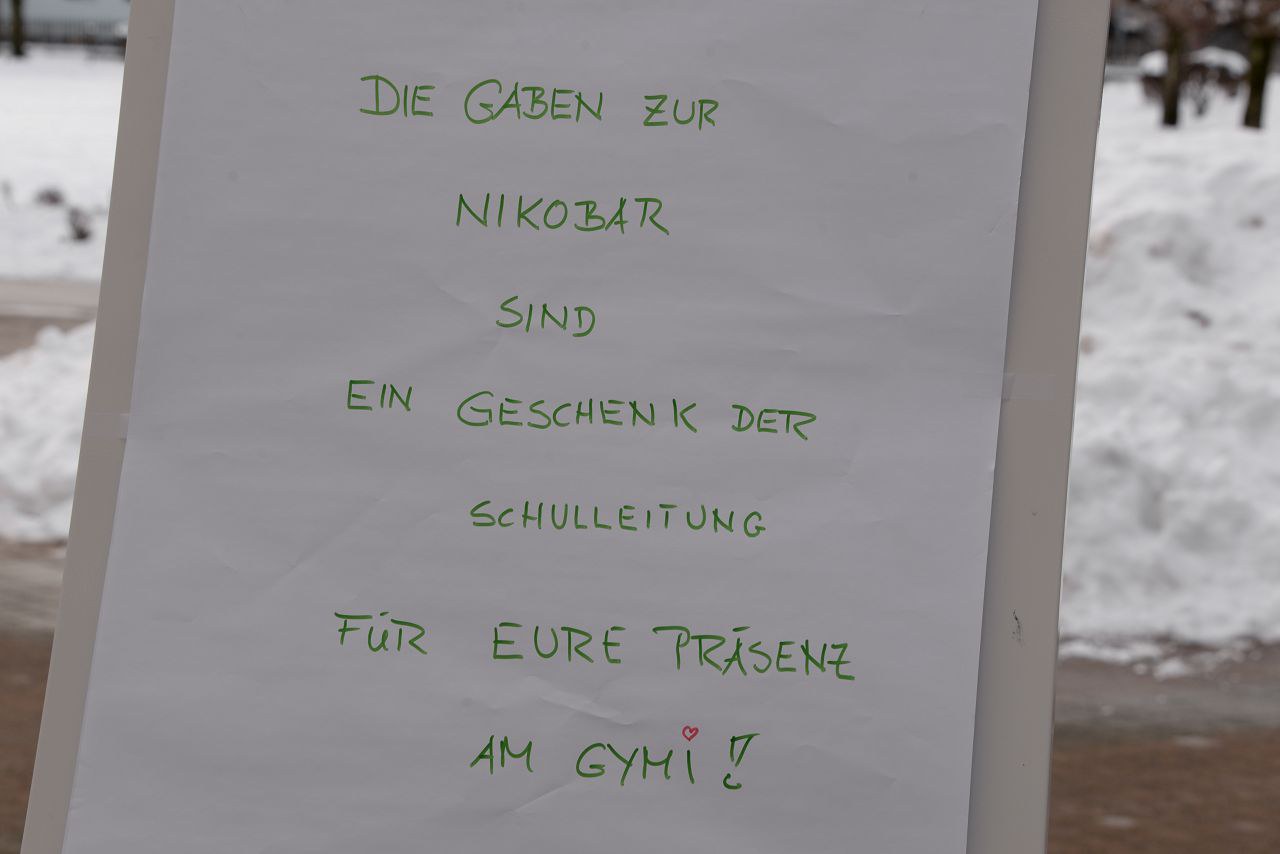 DIE GABEN ZUR
NIKOBAR
SIND
EIN GESCHENK DER
SCHULLEITUNG
FÜR EURE PRÄSENZ
AM GYMI !